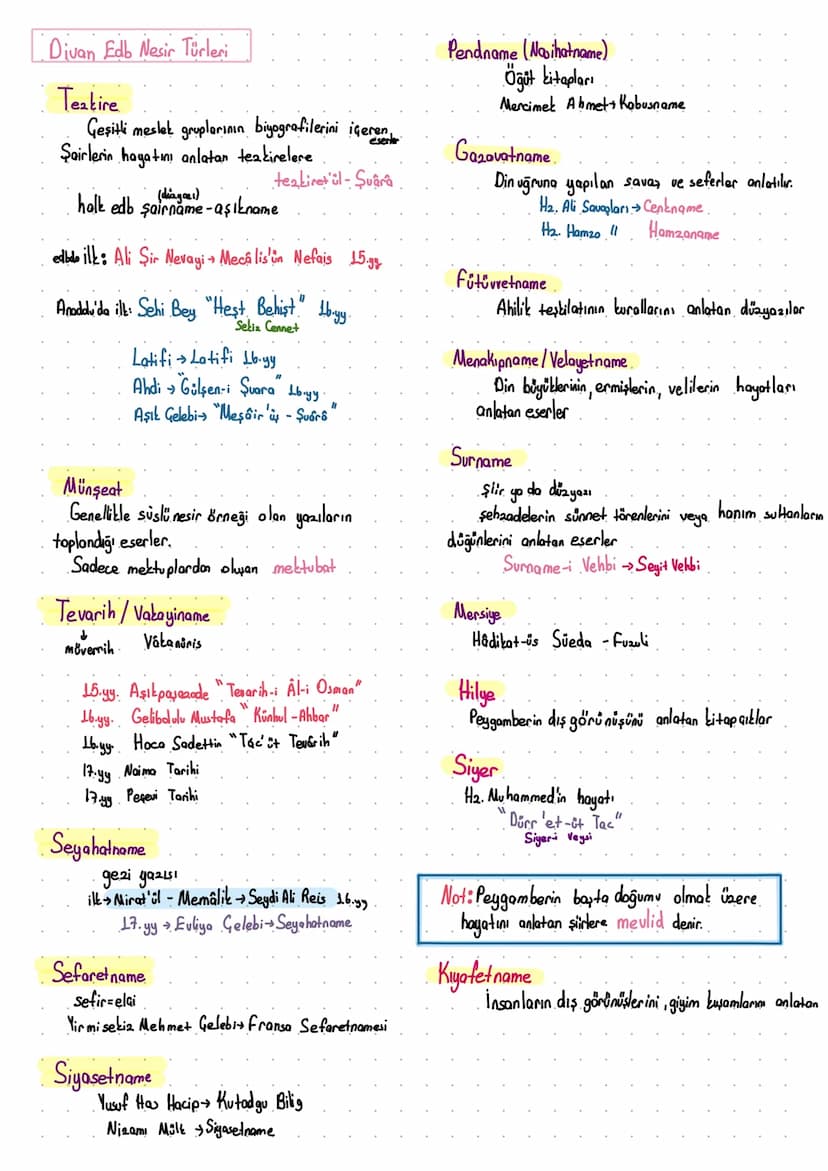 Divan Edb Nesir Türleri
Tezkire
Çeşitli meslek gruplarının biyografilerini içeren eserler
Şairlerin hayatını anlatan tezkirelere
tezkiret'ül-Şuârâ
(düzyazı)
halk edb şairname-aşıkname
edbda ilk: Ali Şir Nevayi → Mecâlis'ün Nefais 15.yy
Anadolu'da ilk: Sehi Bey "Heşt Behişt" 16.yy
Sekiz Cennet
Latifi → Latifi 16.yy
Ahdi → "Gülşen-i Şuara" 16.yy
Aşık Çelebi → "Meşâir'üş - Şuârâ"
Münşeat
Genellikle süslü nesir örneği olan yazıların
toplondığı eserler.
Sadece mektuplardan oluşan mektubat
Tevarih / Vakayiname
↓
müverrih Vâkanüvis
15.yy. Aşıkpaşazade "Tevarih-i Âl-i Osman"
16.yy. Gelibolulu Mustafa "Künhul-Ahbar"
16.yy. Hoca Sadettin "Tâc'üt Tevârih"
17.yy Naima Tarihi
17.yy Peçevi Tarihi
Seyahatname
gezi yazısı
ilk → Mirat'ül - Memâlik → Seydi Ali Reis 16.yy
17.yy → Evliya Çelebi → Seyahatname
Sefaretname
sefir=elçi
Yirmisekiz Mehmet Çelebi → Fransa Sefaretnamesi
Siyasetname
Yusuf Has Hacip → Kutadgu Bilig
Nizamı Mülk → Siyasetname
Pendname (Nasihatname)
Öğüt kitapları
Mercimek Ahmet → Kabusname
Gazavatname
Din uğruna yapılan savaş ve seferler anlatılır.
Hz. Ali Savaşları → Cenkname
Hz. Hamza " Hamzaname
Fütüvvetname
Ahilik teşkilatının kurallarını anlatan düzyazılar
Menakıpname / Velayetname
Din büyüklerinin, ermişlerin, velilerin hayatları
anlatan eserler
Surname
Şiir ya da düzyazı
şehzadelerin sünnet törenlerini veya hanım sultanların
düğünlerini anlatan eserler
Surname-i Vehbi → Seyit Vehbi
Mersiye
Hâdikat-üs Süeda - Fuzuli
Hilye
Peygamberin dış görünüşünü anlatan kitapçıklar
Siyer
Hz. Muhammed'in hayatı
"Dürr'et-üt Tac"
Siyer-i Veysi
Not: Peygamberin başta doğumu olmak üzere
hayatını anlatan şiirlere mevlid denir.
Kıyafetname
İnsanların dış görünüşlerini, giyim kuşamlarını anlatan